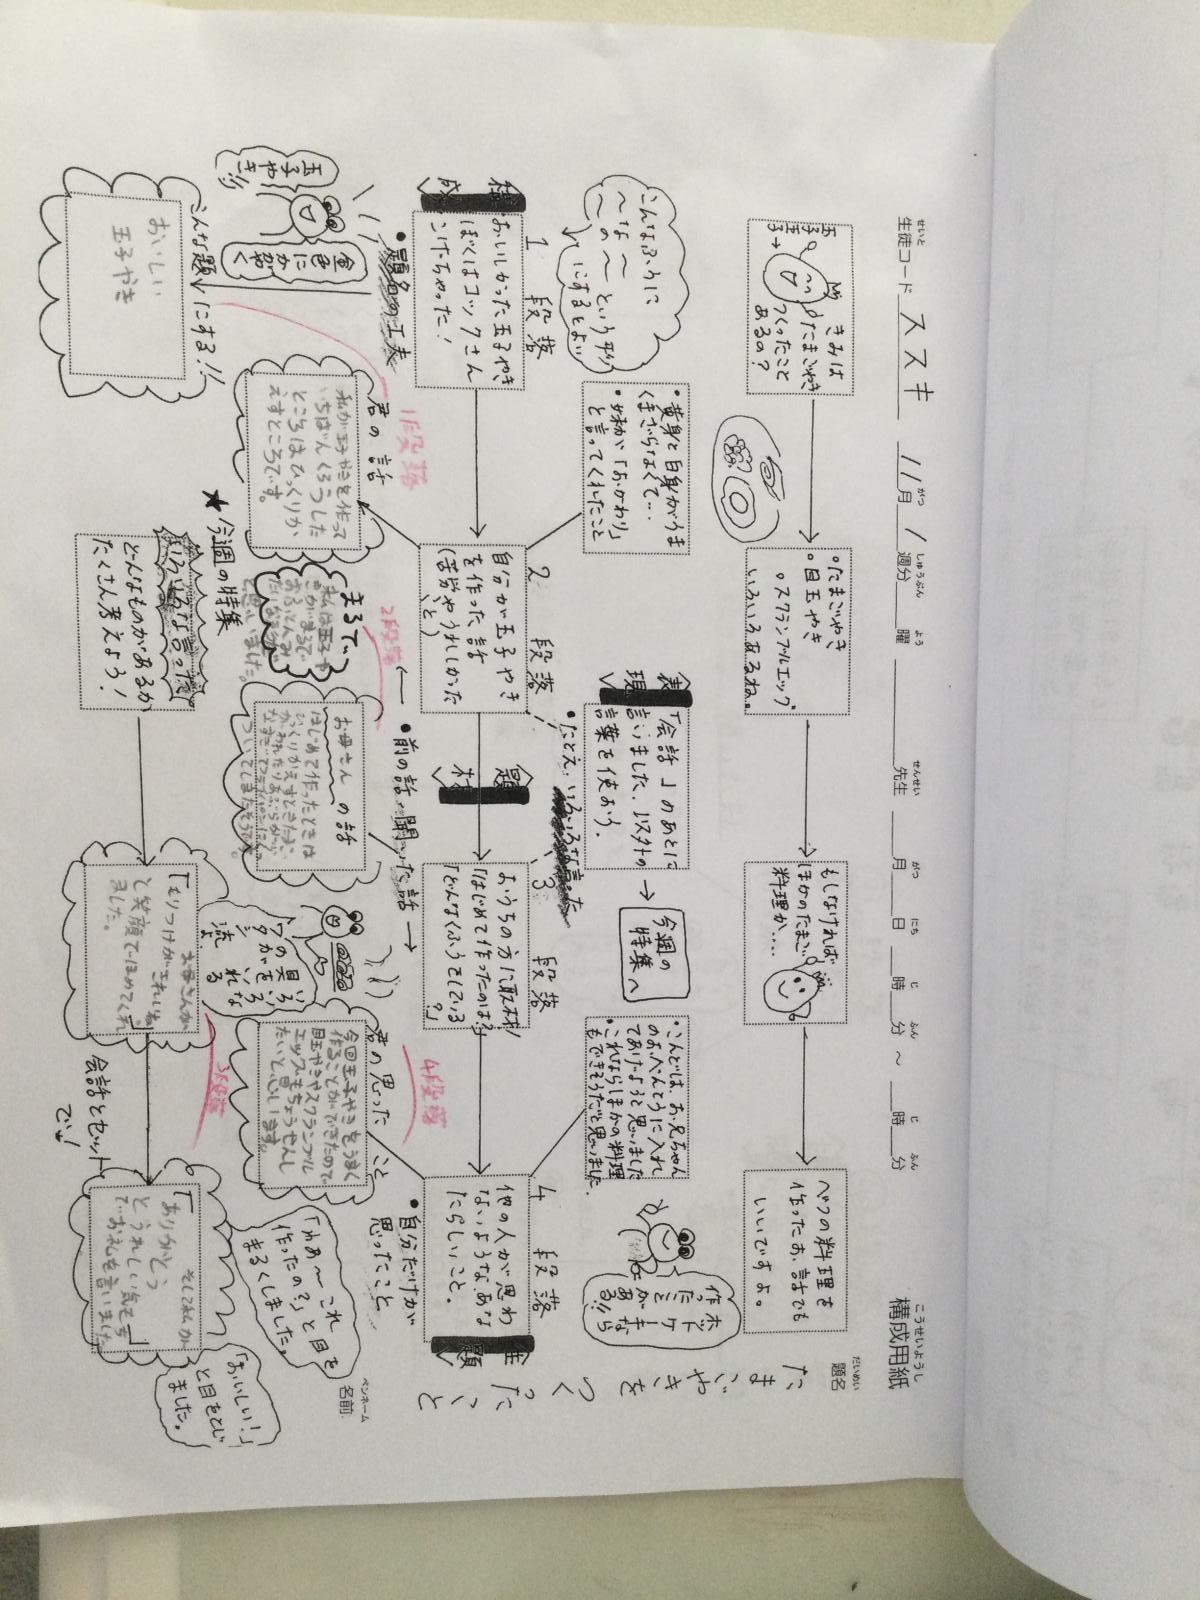 構成用紙
こうせいようし
生徒コード ススキ 11月 1週分 曜 先生 月 日 時 分 ～ 時 分
せいと がつ しゅうぶん よう せんせい がつ にち じ ふん じ ふん
題名
だいめい
たまごやきをつくったこと
名前
ペンネーム
きみは
たまごやき
つくったこと
あるの？
。たまごやき
。目玉やき
。スクランブルエッグ
いろいろあるね。
もしなければ
ほかのたまご
料理か…
べつの料理を
作ったお話でも
いいですよ。
こんなふうに
～な～
～の～という形
にするとよい
・黄身と白身がうま
くまざらなくて…
・妹が「おかわり」
と言ってくれたこと
表現
「会話」のあとに
言いました、以外の
言葉を使おう。
・たとえ
今週の
特集へ
・こんどは、お兄ちゃん
のおべんとうに入れ
てあげようと思いました
これならほかの料理
もできそうだと思いました
ホットケーキなら
作ったことがある!!
構成
1段落
おいしかった玉子やき
ぼくはコックさん
2段落
自分が玉子やき
を作った話
(苦労やうれしかった
こと)
題材
3段落
おうちの方に取材！
「はじめて作ったのは？」
「どんなくふうをしている
？」
4段落
他の人が思わ
ないような、あな
たらしいこと。
主題
・題名の工夫
金色にかがやく
玉子やき!!
こんな題にする!!
おいしい
玉子やき
君の話
1段落
私が玉子やきを作って
いちばんくろうした
ところはひっくりか
えすところです。
まるで
2段落
・前の話・聞いた話
お母さんの話
はじめて作ったときは
ひっくりかえすときたまご
君の思ったこと
4段落
今回玉子やきをうまく
作ることができたので
目玉やきやスクランブル
エッグもちょうせんし
たいと思います。
・自分だけが
思ったこと
★今週の特集
いろいろな言った
どんなものがあるか
たくさん考えよう！
お母さんが
「もりつけがきれいね」
と笑顔でほめてくれ
ました。
3段落
会話とセット
でね！
そして私が
「ありがとう」
とうれしい気もち
でお礼を言いました
「わあ～これ
作ったの？」と目を
まるくしました。
「おいしい！」
と目をとじ
ました。